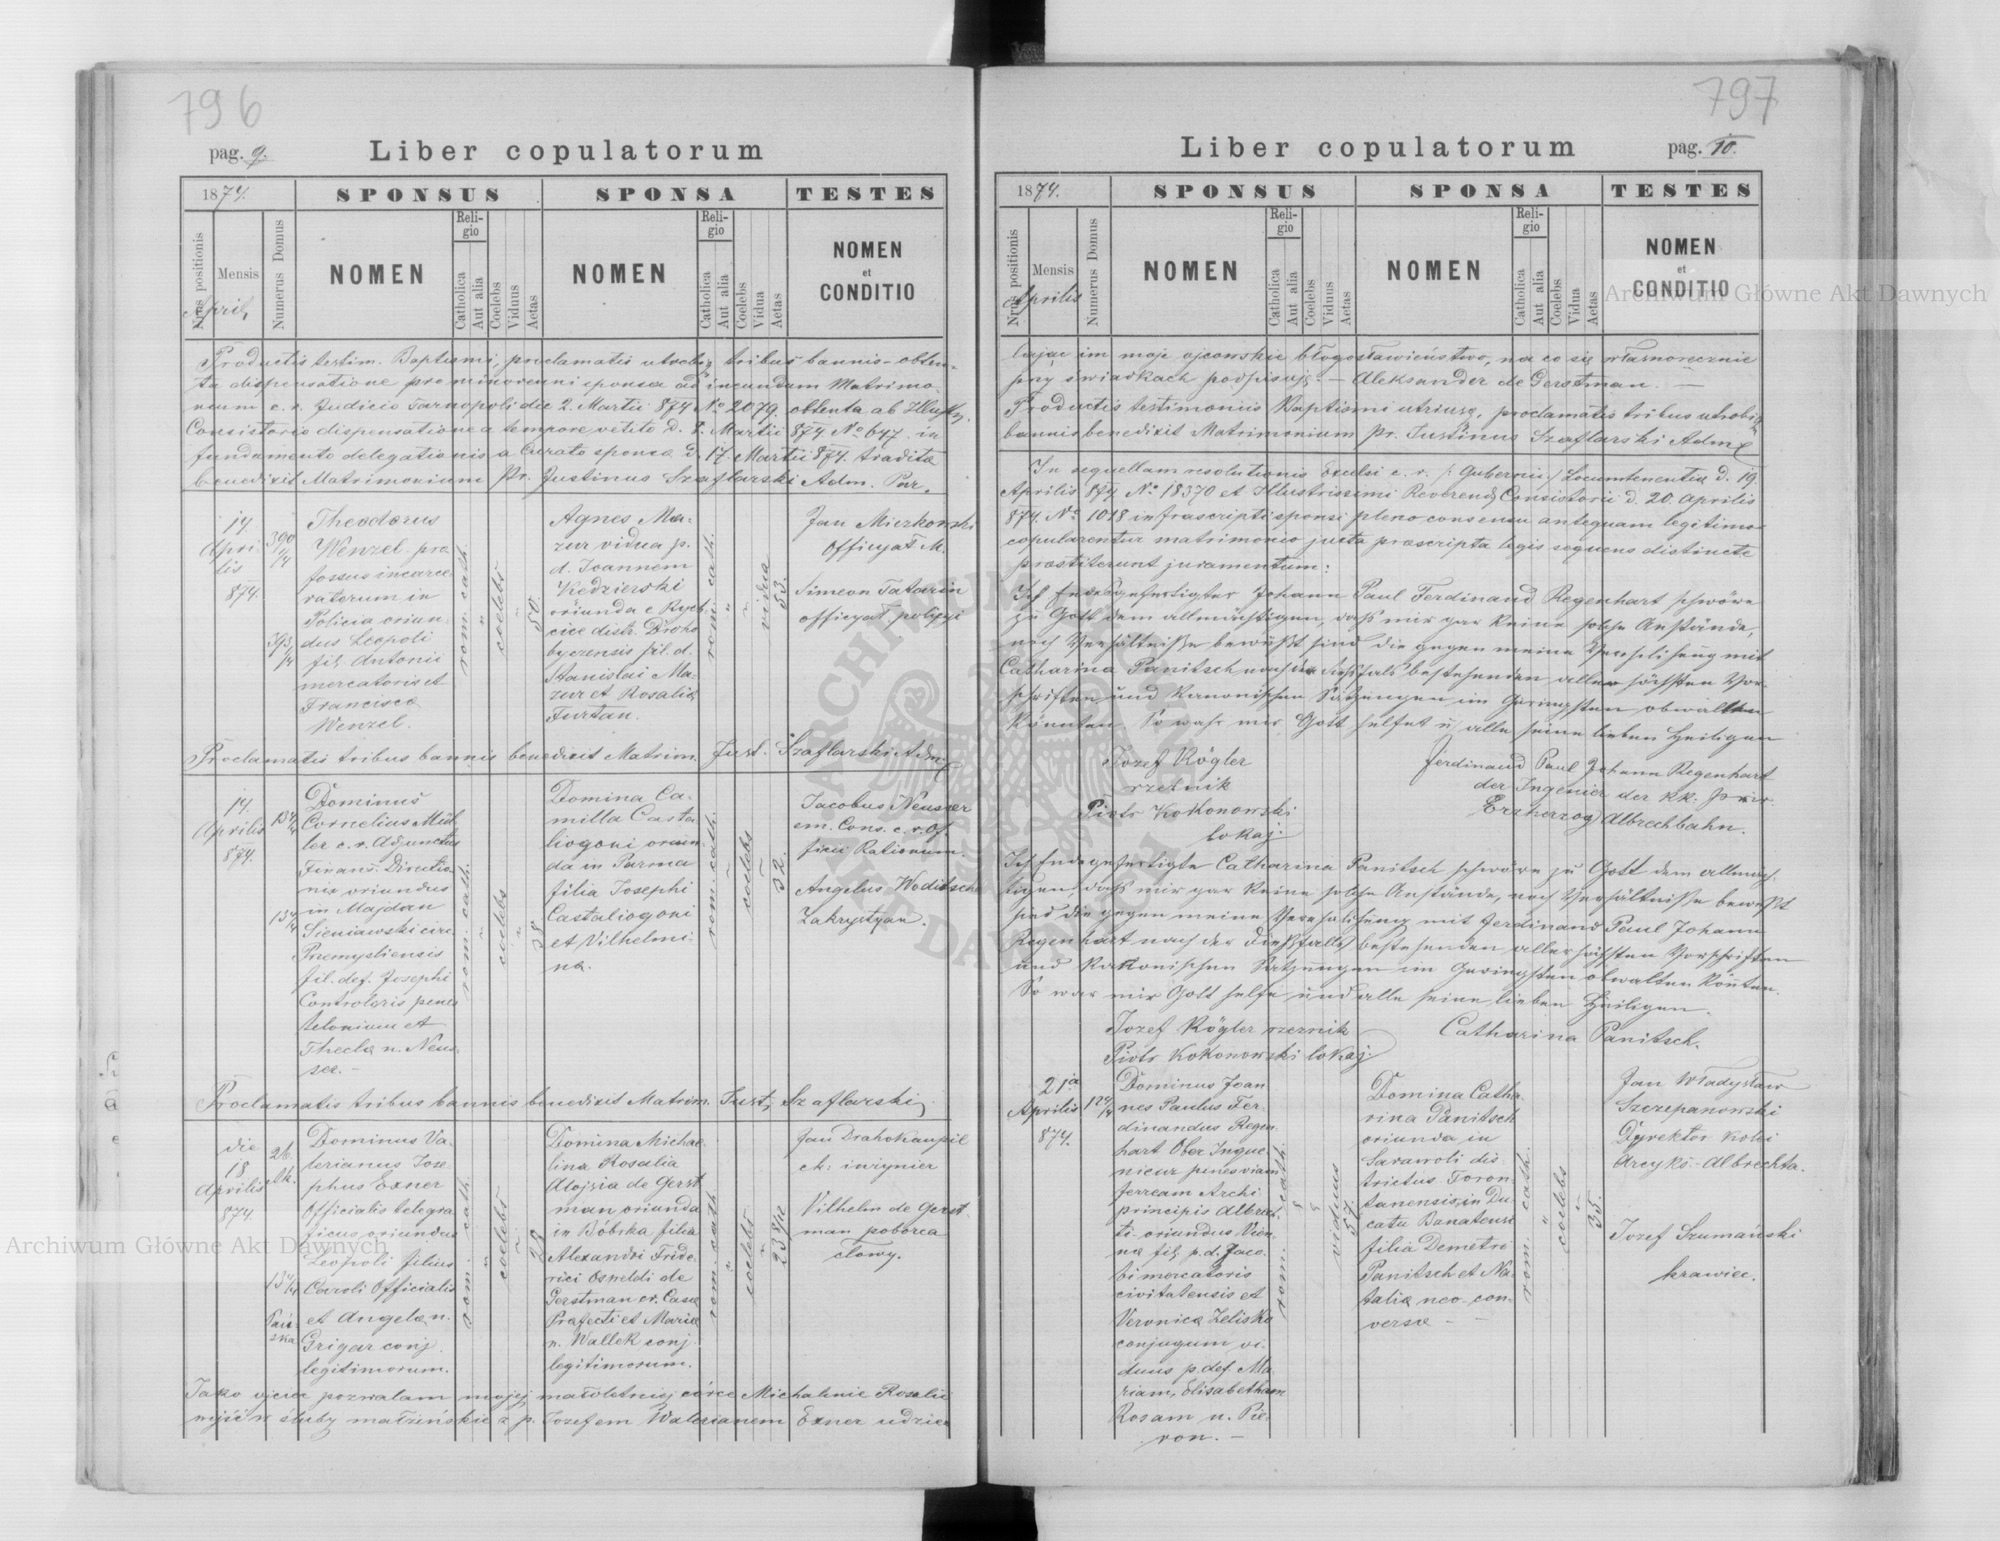 796
pag. 9.
Liber copulatorum
1874.
SPONSUS
SPONSA
TESTES
Nrus positionis
Mensis
April,
Numerus Domus
NOMEN
Religio
Catholica
Aut alia
Coelebs
Viduus
Aetas
NOMEN
Religio
Catholica
Aut alia
Coelebs
Vidua
Aetas
NOMEN
et
CONDITIO
Productis testim. Baptismi, proclamatis utrobiq tribus bannis - obten-
ta dispensatione pro minorenni sponsa ad ineundum Matrimo-
nium c. r. Judicio Tarnopoli die 2. Martii 874 No 2079. obtenta ab Illustr.
Consistorio dispensatione a tempore vetito d. Martii 874 No 647. in
fundamento delegationis a Curato sponsa d. 17. Martii 874. tradita
benedixit Matrimonium Pr. Justinus Szaflarski Adm. Par.
14
Apri-
lis
874.
390
1/4
393
1/4
Theodorus
Wenzel pro
fossus incarce-
ratorum in
Policia oriun-
dus Leopoli
fil. Antonii
mercatoris et
Francisca
Wenzel.
rom. cath.
coelebs
50.
Agnes Ma-
zur vidua p.
d. Joannem
Kędzierski
oriunda e Rych-
cice distr. Droho
byczensis fil. d.
Stanislai Ma-
zur et Rosalia
Furtan.
rom. cath.
vidua
53.
Jan Mierkowski
Officyał M.
Simeon Tatarin
officyał policyi
Proclamatis tribus bannis benedixit Matrim. Just. Szaflarski Adm.
14.
Aprilis
874.
134/4
134/4
Dominus
Cornelius Mül
ler c. r. Adjunctus
Finans. Directio-
nis oriundus
in Majdan
Sieniawski circ.
Przemysliensis
fil. def. Josephi
Controloris penes
telonium et
Thecla n. Neus-
ser. -
rom. cath.
coelebs
38.
Domina Ca-
milla Casta
liogoni oriun-
da in Parma
filia Josephi
Castaliogoni
et Vilhelmi-
na.
rom. cath.
coelebs
32.
Jacobus Neusser
em. Cons. c. r. Of-
ficii Rationum.
Angelus Woditsch
Zakrystyan.
Proclamatis tribus bannis benedixit Matrim. Just, Szaflarski
die
18
Aprilis
874
26.
134/4
Pań-
ska
Dominus Va-
lerianus Jose-
phus Exner
Officialis telegra-
ficus oriundus
Leopoli filius
Caroli Officialis
et Angela n.
Grigar conj.
legitimorum.
rom. cath.
coelebs
28
Domina Michae-
lina Rosalia
Aloysia de Gerst
man oriunda
in Bóbrka filia
Alexandri Fride-
rici Osweldi de
Gerstman cr. Casa
Prafecti et Maria
n. Wallek conj.
legitimorum.
rom. cath
coelebs
23 8/12
Jan Drahokaupil
ck: inżynier
Vilhelm de Gerst-
man poborca
cłowy.
Jako ojciec pozwalam mojej małoletniej córce Michalinie Rosalii
wyjść w śluby małżeńskie z p. Jozefem Walerianem Exner udzie-
797
pag. 10.
Liber copulatorum
1874.
SPONSUS
SPONSA
TESTES
Nrus positionis
Mensis
Aprilis
Numerus Domus
NOMEN
Religio
Catholica
Aut alia
Coelebs
Viduus
Aetas
NOMEN
Religio
Catholica
Aut alia
Coelebs
Vidua
Aetas
NOMEN
et
CONDITIO
lając im moje ojcowskie błogosławieństwo, na co się własnoręcznie
przy świadkach podpisuję: - Aleksander de Gerstman. -
Productis testimoniis Baptismi utriusq. proclamatis tribus utrobiq
bannis benedixit Matrimonium Pr. Justinus Szaflarski Adm
In sequellam resolutionis Excelsi c. r. /: Gubernii:/ Locumtenentia d. 19.
Aprilis 874 No 18370 et Illustrissimi Reverend Consistorii d. 20. Aprilis
874. No 1018 infrascripti sponsi pleno consensu antequam legitimo
copularentur matrimonio juxta prascripta legis sequens distincte
prastiterunt juramentum:
Ich Endesgefertigter Johann Paul Ferdinand Regenhart schwöre
zu Gott dem allmächtigen, daß mir gar keine solche Anstände,
noch Verhältniße bewußt sind die gegen meine Verehelichung mit
Catharina Panitsch nach den dießfals bestehenden allerhöchsten Vor-
schriften und Kanonischen Satzungen im Geringsten obwalten
könnten. So wahr mir Gott helfet u alle seine lieben Heiligen
Jozef Kögler
rzeźnik
Piotr Kokonowski
lokaj.
Ferdinand Paul Johann Regenhart
der Ingenier der kk. priv.
Erzherzog Albrechbahn.
Ich Endesgefertigte Catharina Panitsch schwöre zu Gott dem allmäch-
tigen, daß mir gar keine solche Anstände, noch Verhältniße bewußt
sind die gegen meine Verehelichung mit Ferdinand Paul Johann
Regenhart nach der dießfalls bestehenden allerhöchsten Vorschriften
und Kanonischen Satzungen im Geringsten obwalten könten.
So war mir Gott helfe und alle seine lieben Heiligen.
Jozef Kögler rzeznik
Piotr Kokonowski lokaj.
Catharina Panitsch.
21a
Aprilis
874.
124/4
Dominus Joan
nes Paulus Fer-
dinandus Regen-
hart Ober Inge-
nieur penes viam
ferream Archi
principis Albrec-
ti oriundus Vien-
na fil. p. d. Jaco-
bi mercatoris
civitatensis et
Veronica Zelisko
conjugum vi-
duus p. def. Ma-
riam, Elisabetham
Rosam n. Pie-
ron. -
rom. cath.
viduus
57.
Domina Catha-
rina Panitsch
oriunda in
Sarawoli dis-
trictus Toron-
tanensis in Du-
catu Banatense
filia Demetri
Panitsch et Na-
talia neo-con-
versa -
rom. cath.
coelebs
35.
Jan Władysław
Szczepanowski
Dyrektor kolei
Arcyks-Albrechta.
Jozef Szumański
krawiec.
Archiwum Główne Akt Dawnych
Archiwum Główne Akt Dawnych
ARCHIWUM GŁÓWNE AKT DAWNYCH